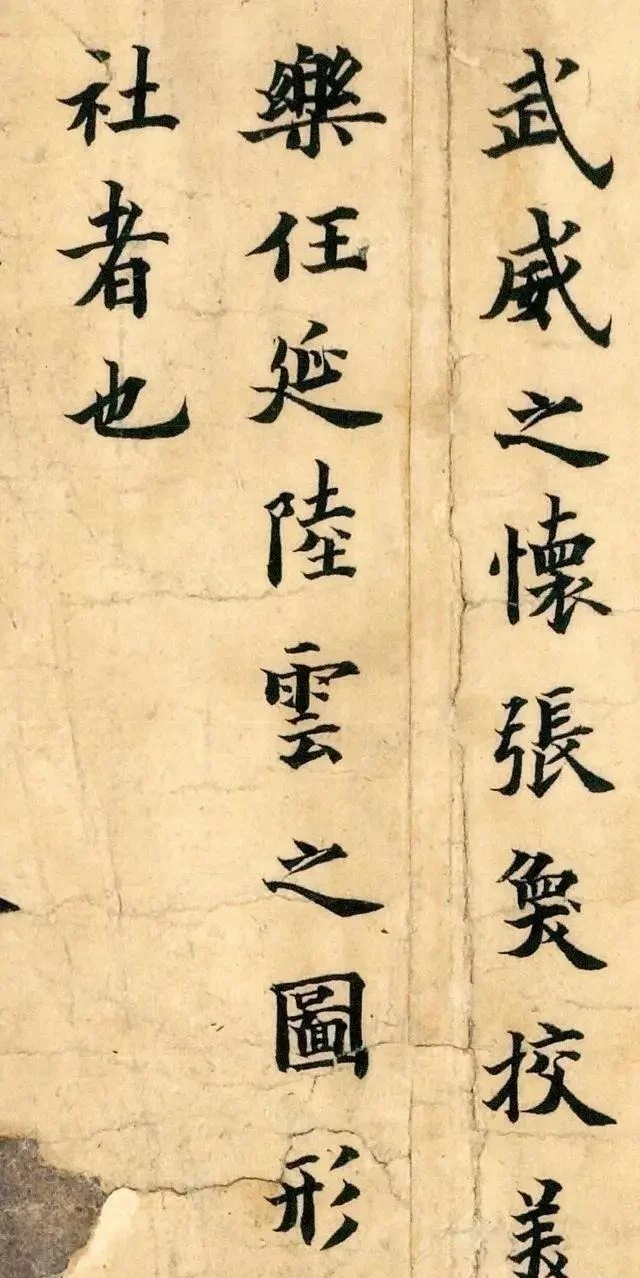 武威之懷張奐校美
樂任延陸雲之圖形
社者也